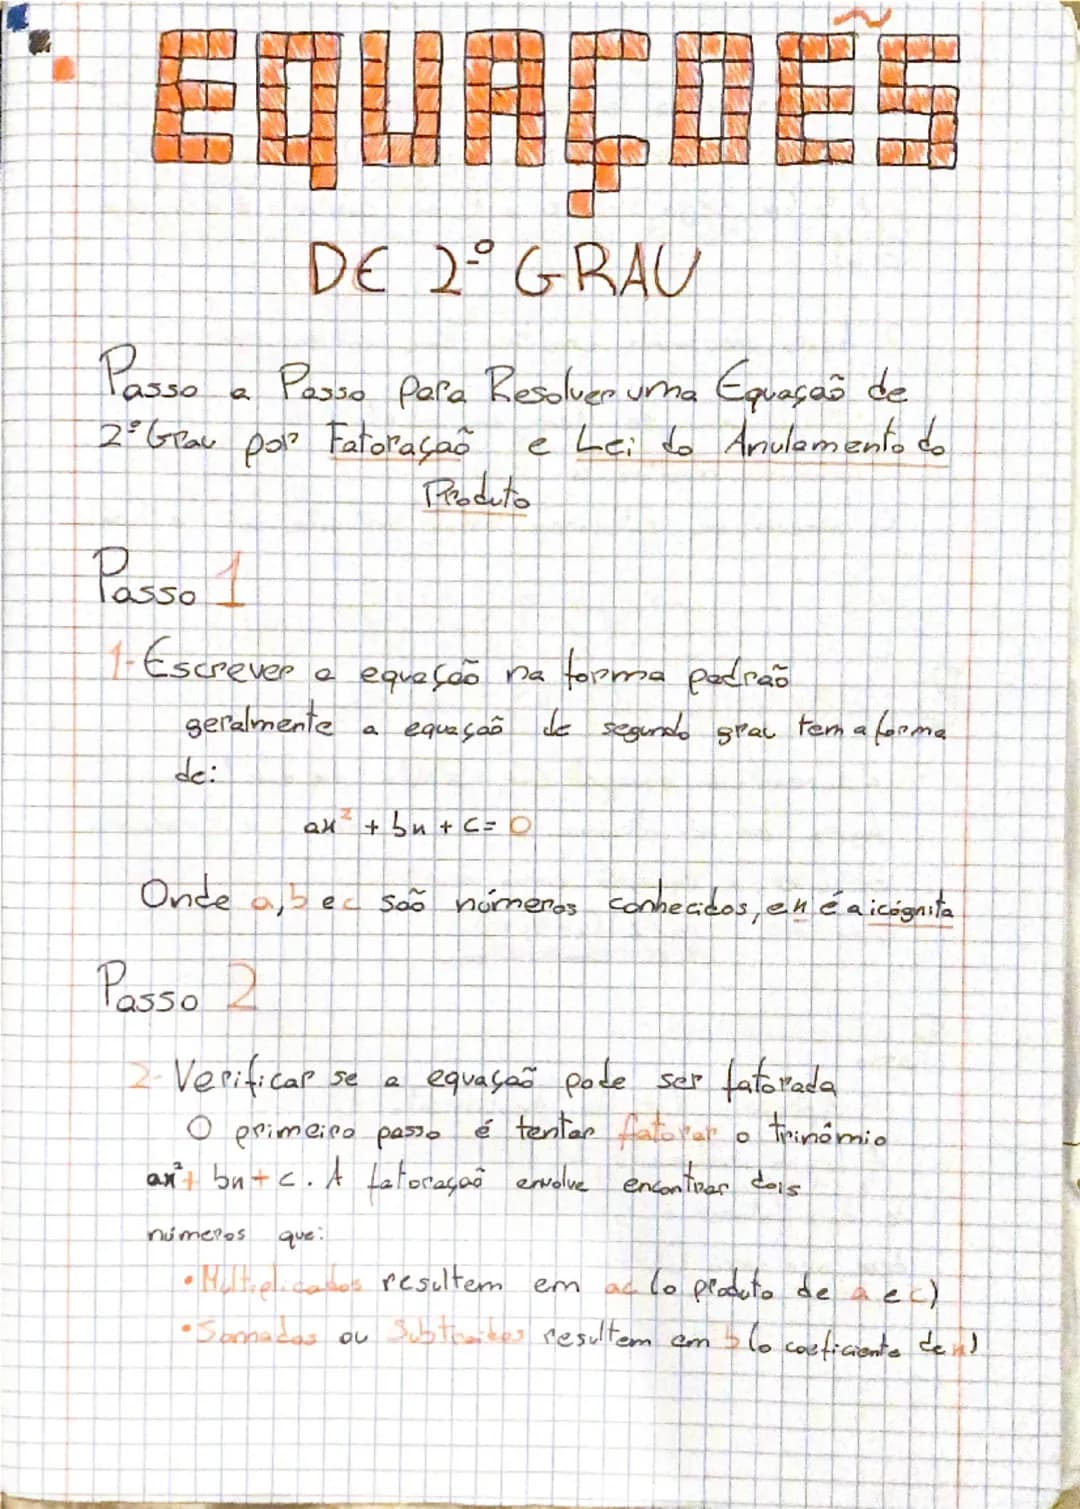 EQUAÇÕES
DE 2º GRAU
Passo a Passo para Resolver uma Equação de
2º Grau por Fatoração e Lei do Anulamento do
Produto
Passo 1
1-Escrever a equação na forma padrão
geralmente a equação de segundo grau tem a forma
de:
ax² + bx + c = 0
Onde a, b e c são números conhecidos, e x é a icógnita
Passo 2
2-Verificar se a equação pode ser fatorada
O primeiro passo é tentar fatorar o trinômio
ax² + bx + c. A fatoração envolve encontrar dois
números que:
•Multiplicados resultem em ac (o produto de a e c)
•Somados ou Subtraídos resultem em b (o coeficiente de x)